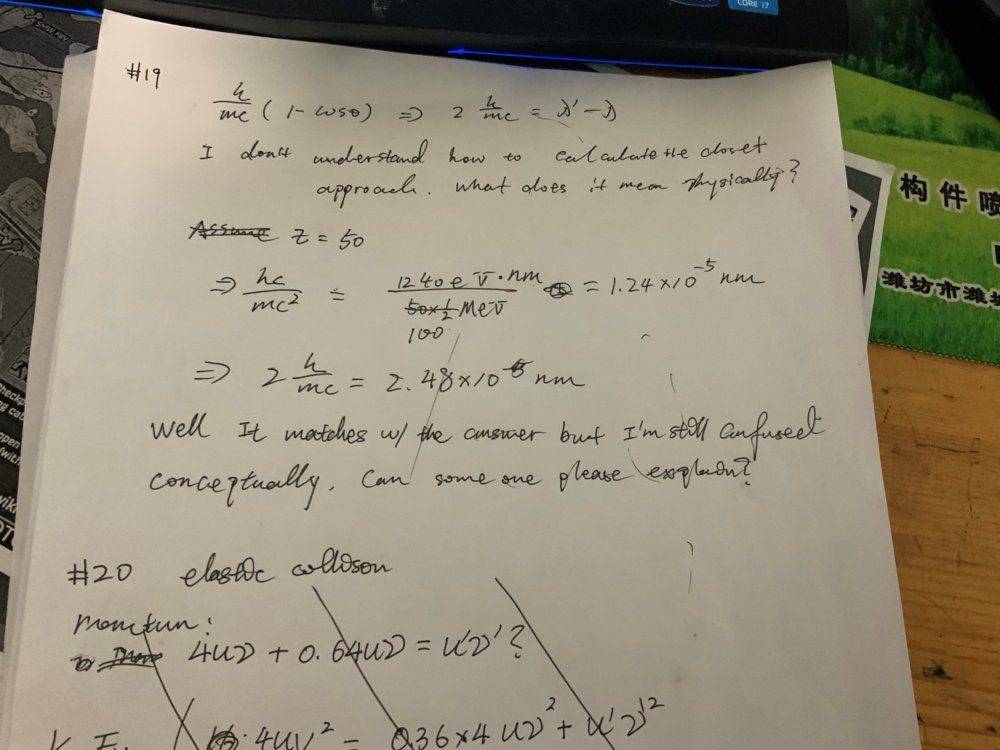 CORE i7
#19
h/mc (1-cosθ) ⇒ 2 h/mc = λ' - λ
I don't understand how to calculate the closet
approach. What does it mean physically?
Assume z = 50
⇒ hc/mc² = 1240 eV·nm / 50×½ MeV 100 = 1.24×10⁻⁵ nm
⇒ 2 h/mc = 2.48×10⁻⁵ nm
Well It matches w/ the answer but I'm still confused
conceptually. Can some one please explain?
#20 elastic collison
Momentum:
4uv + 0.64uv = u'v'?
4uv² = 0.36×4uv² + u'v'²
构件喷
潍坊市潍坊